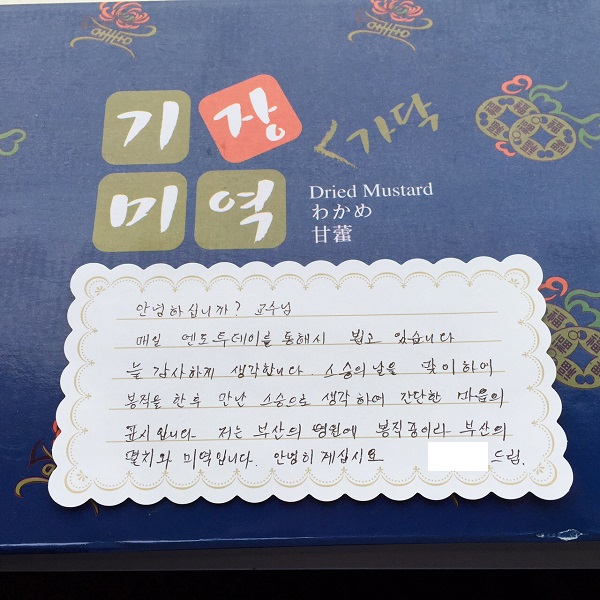 기장 <가닥
미역
Dried Mustard
わかめ
甘藿
안녕하십니까? 교수님
매일 엔도투데이를 통해서 뵙고 있습니다
늘 감사하게 생각합니다. 스승의 날을 맞이하여
봉직을 한 후 만난 스승으로 생각하여 간단한 마음의
표시입니다. 저는 부산의 병원에 봉직중이라 부산의
멸치와 미역입니다. 안녕히 계십시요 드림.